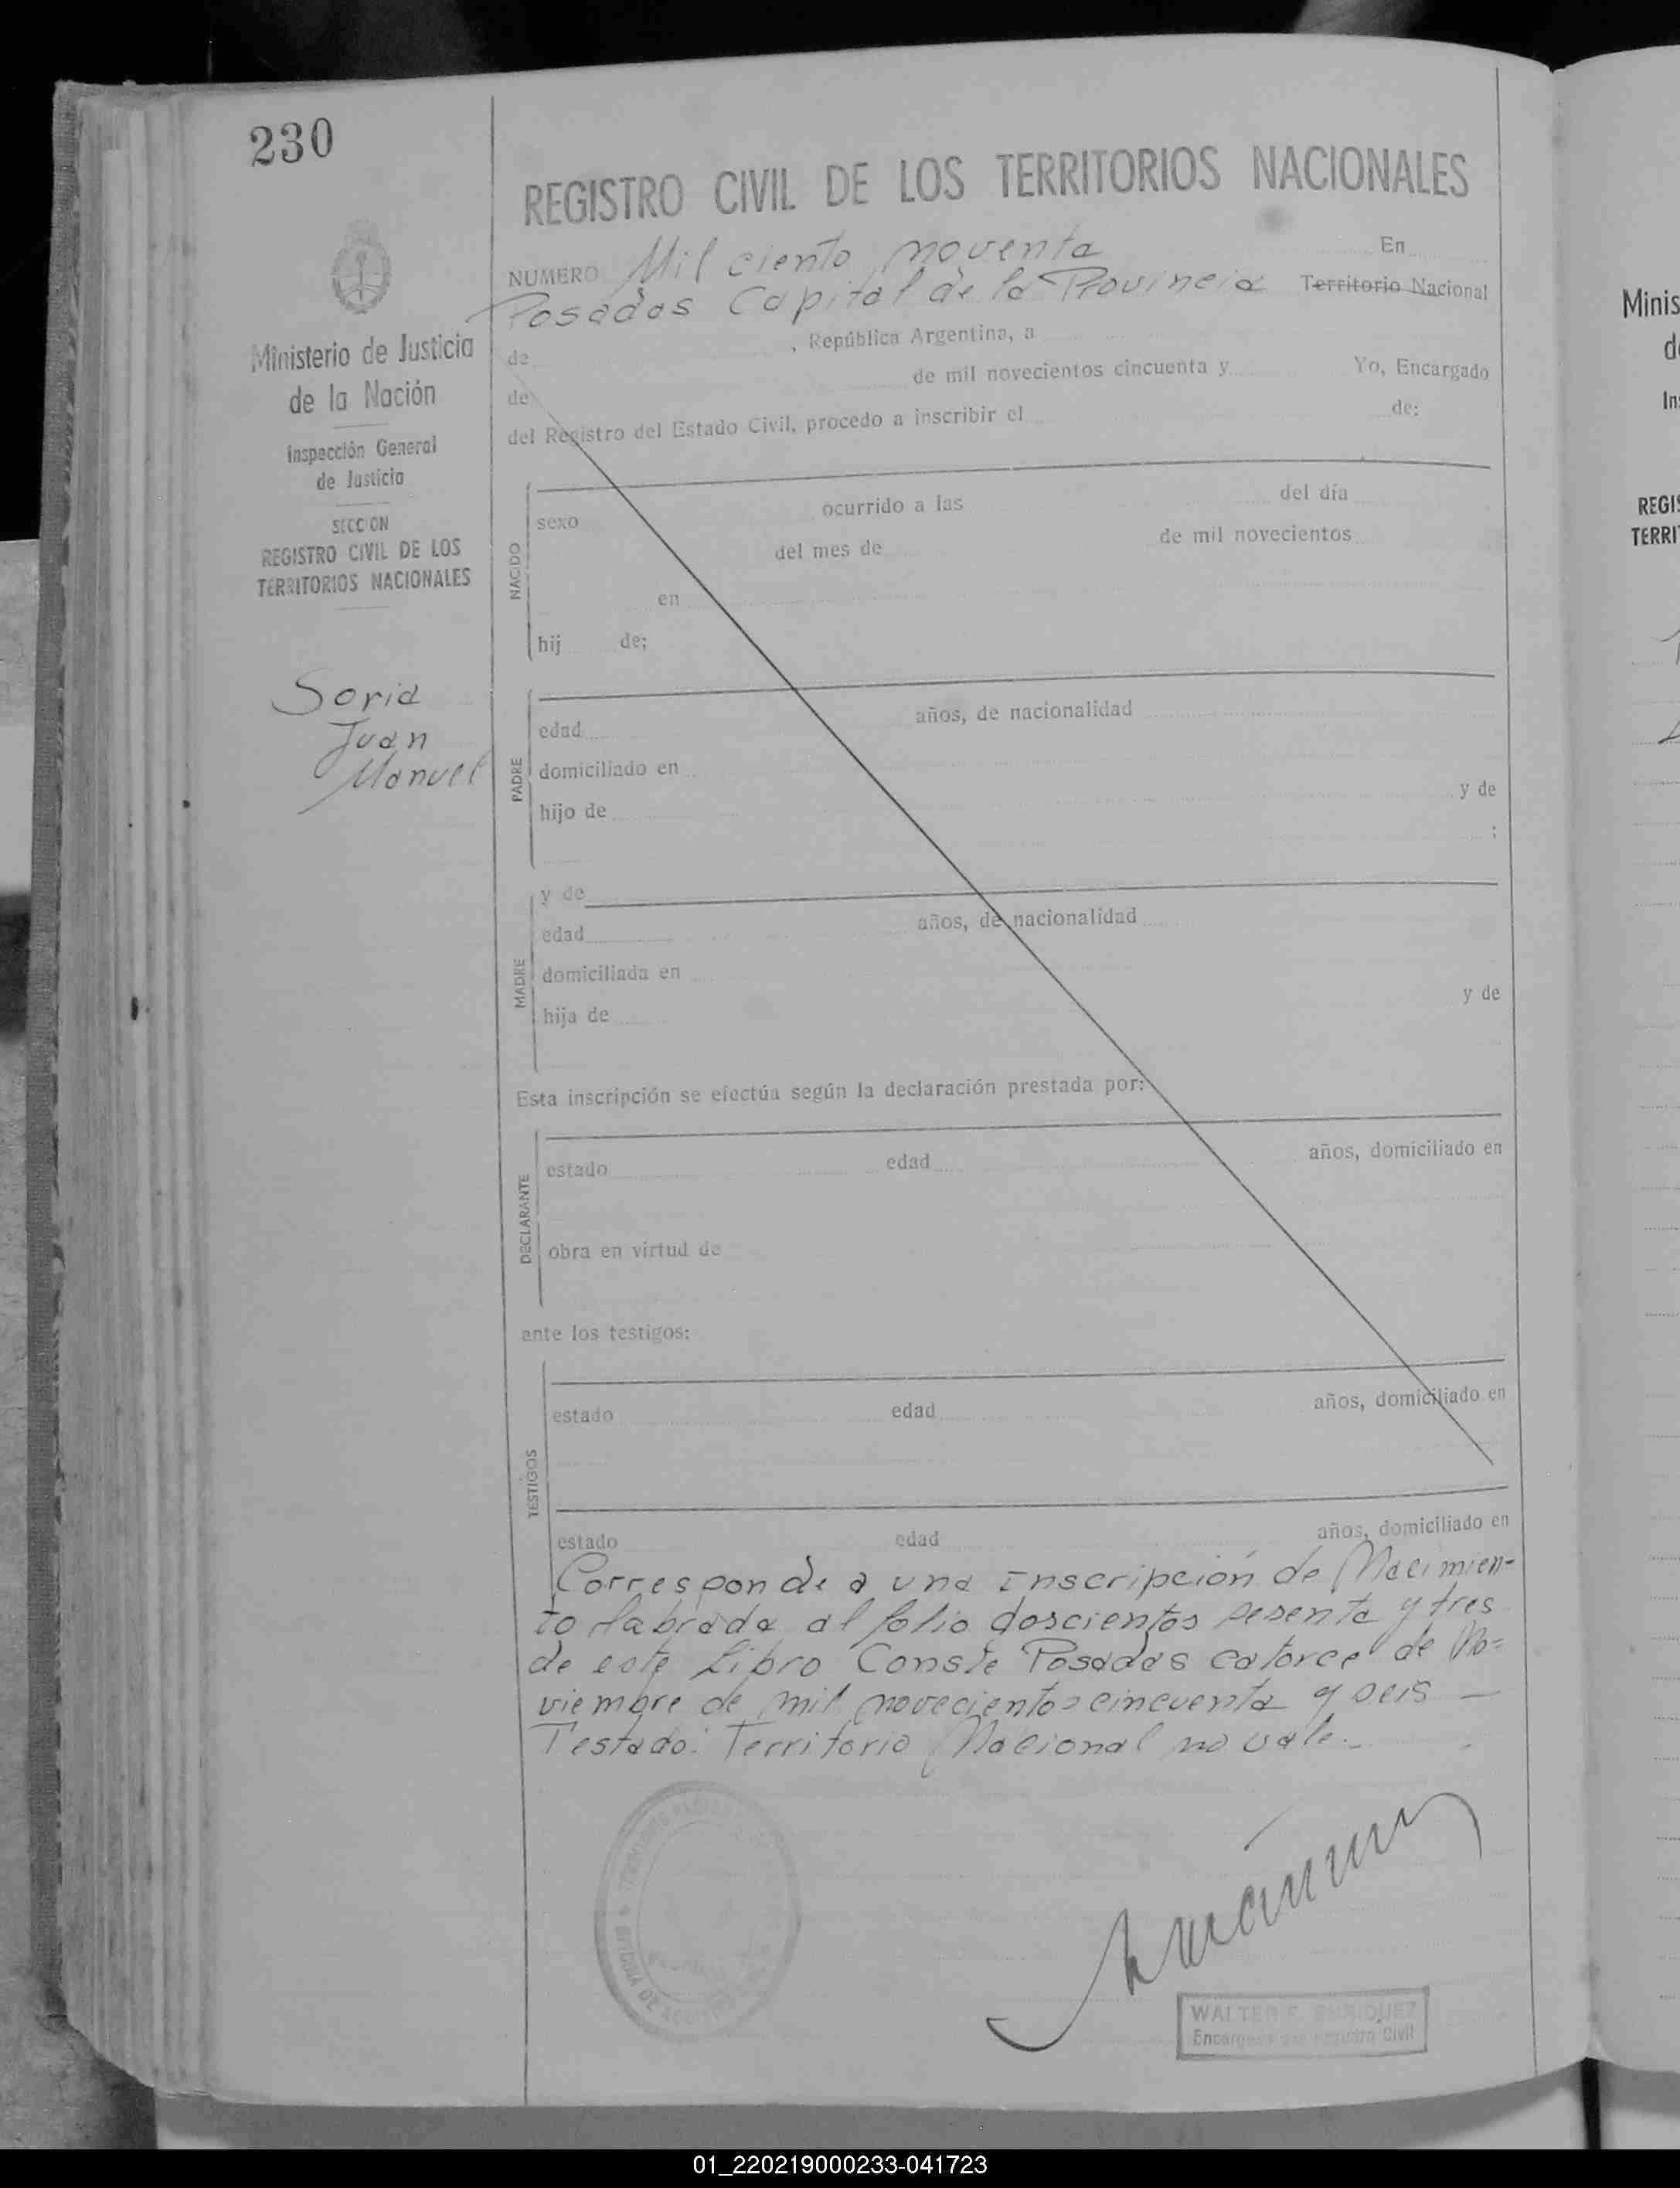 230
REGISTRO CIVIL DE LOS TERRITORIOS NACIONALES
NUMERO Mil ciento noventa En
Posadas Capital de la Provincia Territorio Nacional
de , República Argentina, a
de de mil novecientos cincuenta y Yo, Encargado
del Registro del Estado Civil, procedo a inscribir el de:
Ministerio de Justicia
de la Nación
Inspección General
de Justicia
SECCION
REGISTRO CIVIL DE LOS
TERRITORIOS NACIONALES
Soria
Juan
Manuel
NACIDO
sexo ocurrido a las del día
del mes de de mil novecientos
en
hij de;
PADRE
edad años, de nacionalidad
domiciliado en
hijo de y de
;
MADRE
y de
edad años, de nacionalidad
domiciliada en
hija de y de
Esta inscripción se efectúa según la declaración prestada por:
DECLARANTE
estado edad años, domiciliado en
obra en virtud de
ante los testigos:
TESTIGOS
estado edad años, domiciliado en
estado edad años, domiciliado en
Corresponde a una Inscripción de Nacimien-
to labrada al folio doscientos sesenta y tres
de este Libro Conste Posadas catorce de No=
viembre de mil novecientos cincuenta y seis —
Testado: Territorio Nacional no vale.-
WALTER F. ENRIQUEZ
Encargado del Registro Civil
Minis
d
In
REGIS
TERRI
01_220219000233-041723